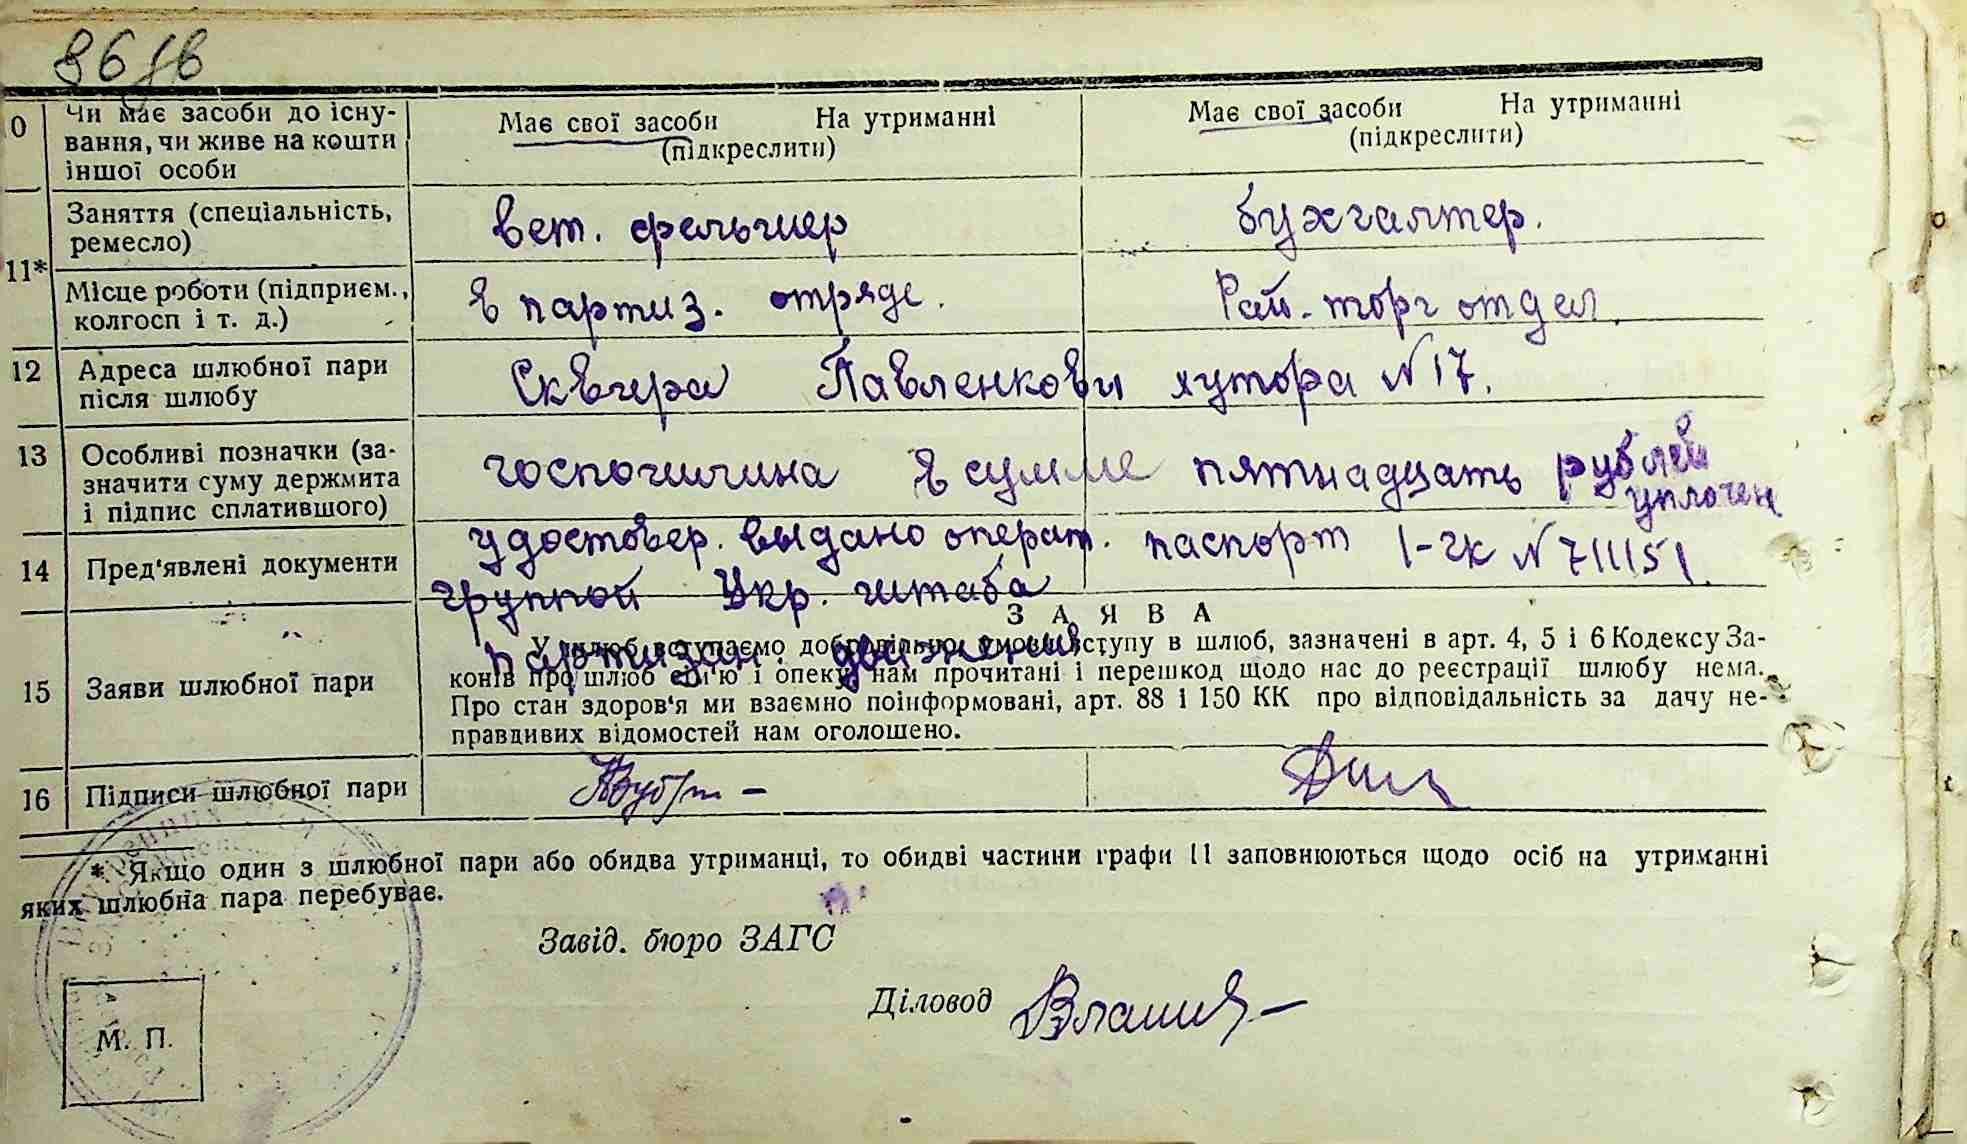 86зв
0 Чи має засоби до існу-
вання, чи живе на кошти
іншої особи
Має свої засоби На утриманні
(підкреслити)
Має свої засоби На утриманні
(підкреслити)
11*
Заняття (спеціальність,
ремесло)
вет. фельшер
бухгалтер.
Місце роботи (підприєм.,
колгосп і т. д.)
в партиз. отряде.
Рай. торг отдел.
12 Адреса шлюбної пари
після шлюбу
Сквира Павленкови хутора N 17.
13 Особливі позначки (за-
значити суму держмита
і підпис сплатившого)
госпошлина в сумме пятнадцать рублей
уплочен
14 Пред'явлені документи
удостовер. выдано операт.
группой Укр. штаба
партизан. движения.
паспорт I-чк N 711151.
ЗАЯВА
15 Заяви шлюбної пари
У шлюб вступаємо добровільно, умови вступу в шлюб, зазначені в арт. 4, 5 і 6 Кодексу За-
конів про шлюб сім'ю і опеку нам прочитані і перешкод щодо нас до реєстрації шлюбу нема.
Про стан здоров'я ми взаємно поінформовані, арт. 88 і 150 КК про відповідальність за дачу не-
правдивих відомостей нам оголошено.
16 Підписи шлюбної пари
* Якщо один з шлюбної пари або обидва утриманці, то обидві частини графи 11 заповнюються щодо осіб на утриманні
яких шлюбна пара перебуває.
Завід. бюро ЗАГС
Діловод
М. П.